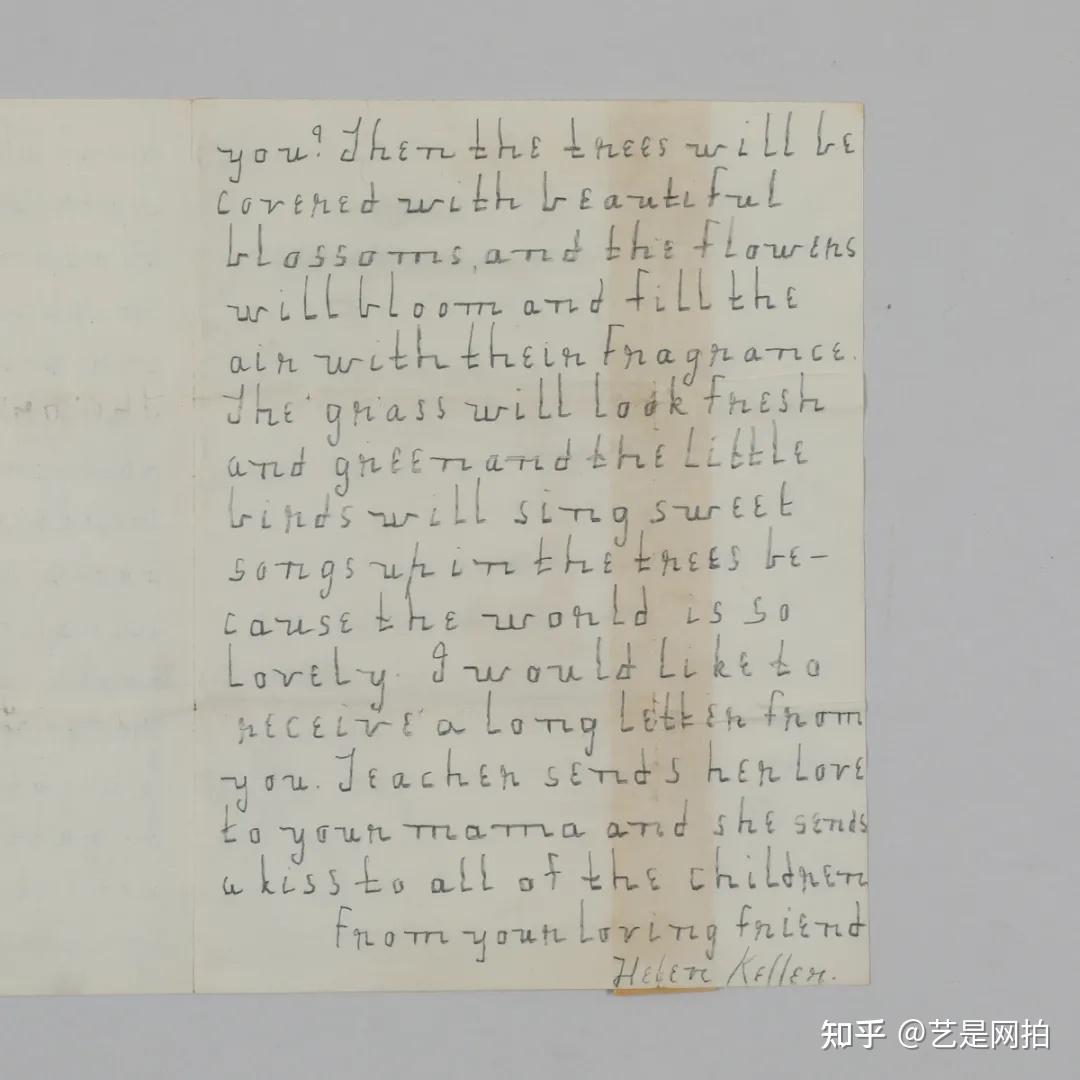 you? Then the trees will be
covered with beautiful
blossoms, and the flowers
will bloom and fill the
air with their fragrance.
The grass will look fresh
and green and the little
birds will sing sweet
songs up in the trees be-
cause the world is so
lovely. I would like to
receive a long letter from
you. Teacher sends her love
to your mama and she sends
a kiss to all of the children
From your loving friend
Helen Keller.
知乎 @艺是网拍